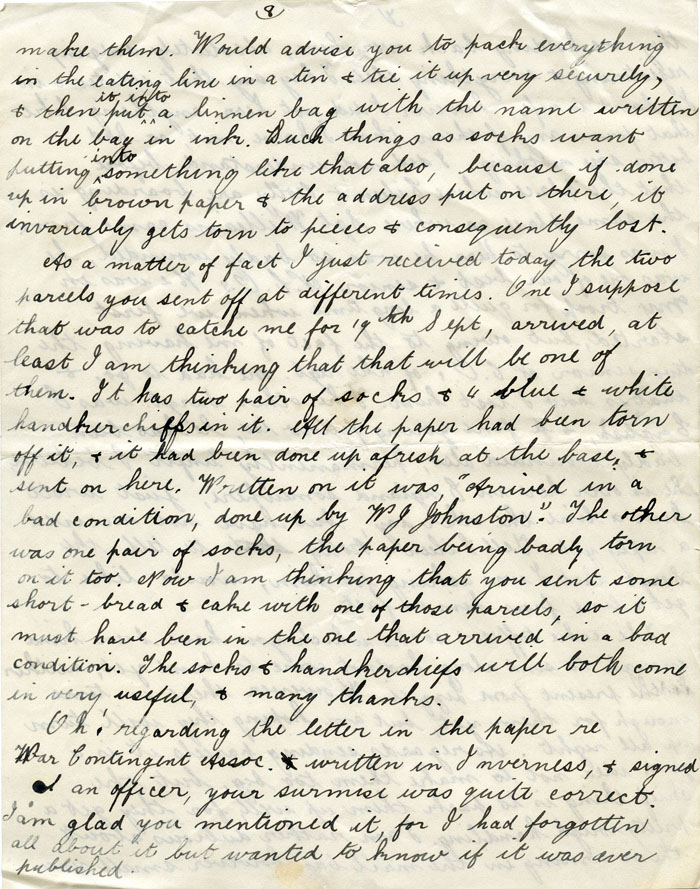 8
make them. Would advise you to pack everything
in the eating line in a tin & tie it up very securely,
& then put it into a linnen bag with the name written
on the bag in ink. Such things as socks want
putting into something like that also, because if done
up in brown paper & the address put on there, it
invariably gets torn to pieces & consequently lost.
As a matter of fact I just received today the two
parcels you sent off at different times. One I suppose
that was to catch me for 19th Sept, arrived, at
least I am thinking that that will be one of
them. It has two pair of socks & 4 blue & white
handkerchiffs in it. All the paper had been torn
off it, & it had been done up afresh at the base, &
sent on here. Written on it was, "Arrived in a
bad condition, done up by W J Johnston". The other
was one pair of socks, the paper being badly torn
on it too. Now I am thinking that you sent some
short-bread & cake with one of those parcels, so it
must have been in the one that arrived in a bad
condition. The socks & handkerchiefs will both come
in very useful, & many thanks.
Oh! regarding the letter in the paper re
War Contingent Assoc. written in Inverness, & signed
an officer, your surmise was quite correct.
I'am glad you mentioned it, for I had forgotten
all about it but wanted to know if it was ever
published.